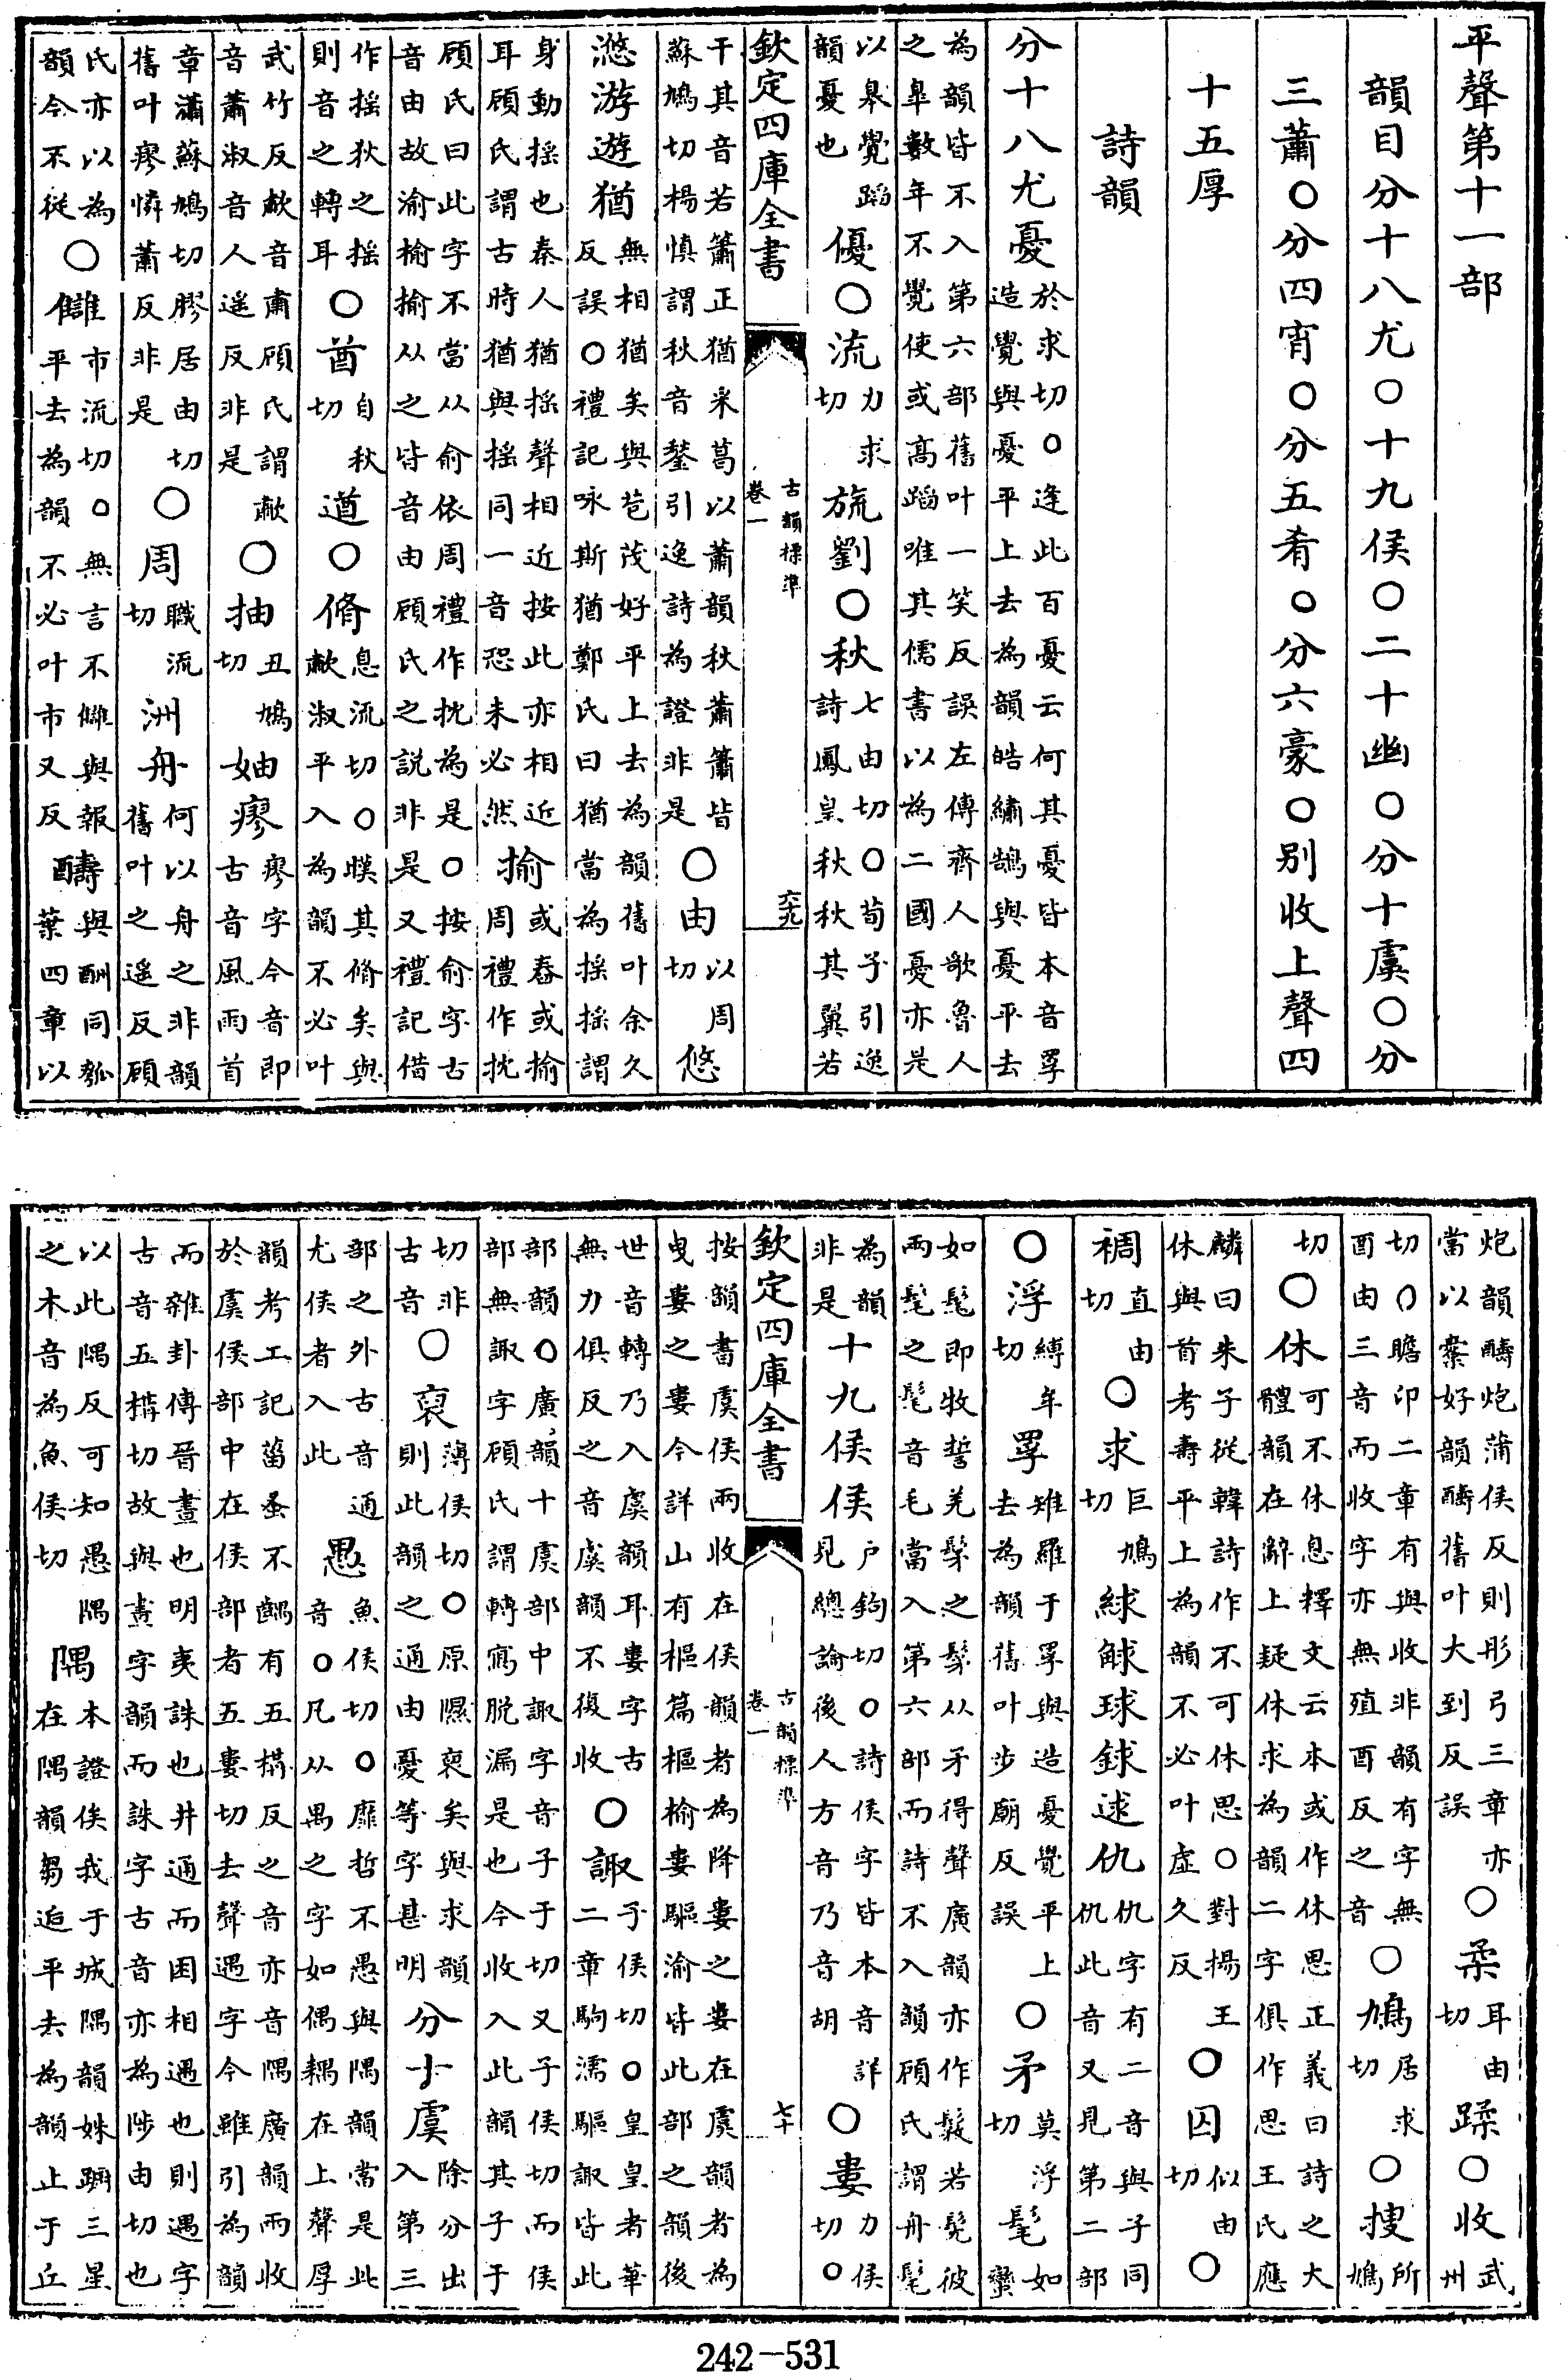 平聲第十一部
韻目分十八尤○十九侯○二十幽○分十虞○分
三蕭○分四宵○分五肴○分六豪○别收上聲四
十五厚
詩韻
分十八尤憂於求切○逢此百憂云何其憂皆本音罦造覺與憂平上去為韻皓繡鵠與憂平去
為韻皆不入第六部舊叶一笑反誤左傳齊人歌魯人之臯數年不覺使或高蹈唯其儒書以為二國憂亦是
以臯覺蹈韻憂也優○流力求切旒劉○秋七由切○荀子引逸詩鳳皇秋秋其翼若
欽定四庫全書 古韻標準 卷一 六九
干其音若簫正猶采葛以蕭韻秋蕭簫皆蘇鳩切楊慎謂秋音鍫引逸詩為證非是○由以周切悠
滺游遊猶無相猶矣與苞茂好平上去為韻舊叶余久反誤○禮記咏斯猶鄭氏曰猶當為揺揺謂
身動揺也秦人猶揺聲相近按此亦相近耳顧氏謂古時猶與揺同一音恐未必然揄或舂或揄周禮作抌
顧氏曰此字不當从俞依周禮作抌為是○按俞字古音由故渝榆揄从之皆音由顧氏之説非是又禮記借
作揺狄之揺則音之轉耳○酋自秋切遒○脩息流切○暵其脩矣與歗淑平入為韻不必叶
武竹反歗音肅顧氏謂歗音蕭淑音人遥反非是○抽丑鳩切妯瘳瘳字今音即古音風雨首
章瀟蘇鳩切膠居由切舊叶瘳憐蕭反非是○周職流切洲舟何以舟之非韻舊叶之遥反顧
氏亦以為韻今不從○讎市流切○無言不讎與報平去為韻不必叶市又反醻與酬同瓠葉四章以
炮韻醻炮蒲侯反則彤弓三章亦當以櫜好韻醻舊叶大到反誤○柔耳由切蹂○收武州
切○瞻卬二章有與收非韻有字無酉由三音而收字亦無殖酉反之音○鳩居求切○搜所鳩
切○休可不休息釋文云本或作休思正義曰詩之大體韻在辭上疑休求為韻二字俱作思王氏應
麟曰朱子從韓詩作不可休思○對揚王休與首考壽平上為韻不必叶虚久反○囚似由切○
裯直由切○求巨鳩切絿觩球銶逑仇仇字有二音與子同仇此音又見第二部
○浮縛年切罦雉羅于罦與造憂覺平上去為韻舊叶步廟反誤○矛莫浮切髦如蠻
如髦即牧誓羌髳之髳从矛得聲廣韻亦作髳若髧彼兩髦之髦音毛當入第六部而詩不入韻顧氏謂舟髦
為韻非是十九侯侯户鉤切○詩侯字皆本音詳見總論後人方音乃音胡○婁力侯切○
欽定四庫全書 古韻標準 卷一 七十
按韻書虞侯兩收在侯韻者為降婁之婁在虞韻者為曳婁之婁今詳山有樞篇樞榆婁驅渝皆此部之韻後
世音轉乃入虞韻耳婁字古無力俱反之音虞韻不復收○諏子侯切○皇皇者華二章駒濡驅諏皆此
部韻○廣韻十虞部中諏字音子于切又子侯切而侯部無諏字顧氏謂轉寫脱漏是也今收入此韻其子于
切非古音○裒薄侯切○原隰裒矣與求韻則此韻之通由憂等字甚明分十虞除分出入第三
部之外古音通尤侯者入此愚魚侯切○靡哲不愚與隅韻當是此音○凡从禺之字如偶耦在上聲厚
韻考工記菑蚤不齵有五構反之音亦音隅廣韻兩收於虞侯部中在侯部者五婁切去聲遇字今雖引為韻
而雜卦傳晉晝也明夷誅也井通而困相遇也則遇字古音五構切故與晝字韻而誅字古音亦為陟由切也
以此隅反可知愚隅之木音為魚侯切隅本證俟我于城隅韻姝躕三星在隅韻芻逅平去為韻止于丘
242-531